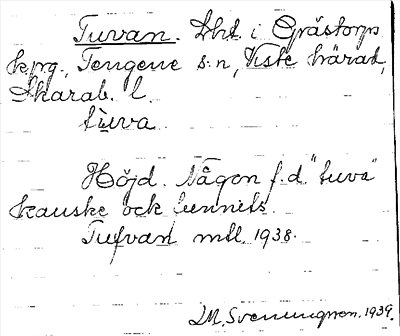 Tuvan. Lht. i Grästorps
köprg., Tengene s:n, Viste härad,
Skarab. l.
tu̇va
Höjd. Någon f.d. "tuva"
kanske ock funnits.
Tufvan mtl. 1938.
I.M. Svenungsson. 1939.